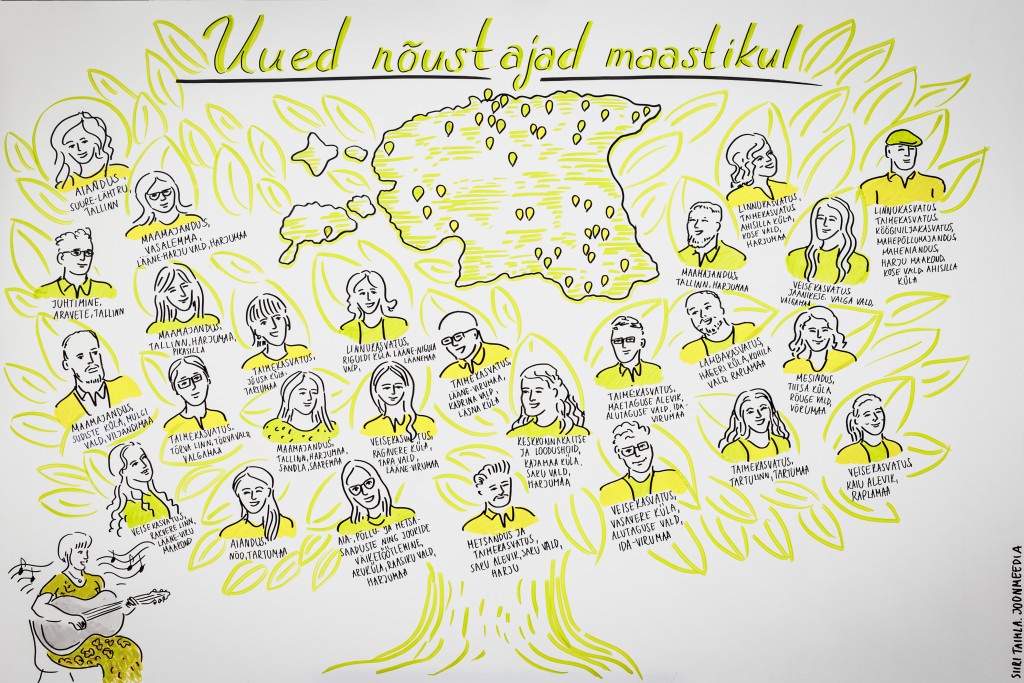 Uued nõustajad maastikul
AIANDUS,
SUURE-LÄHTRU,
TALLINN
MAAMAJANDUS,
VASALEMMA,
LÄÄNE-HARJU VALD, HARJUMAA
JUHTIMINE,
ARAVETE, TALLINN
MAAMAJANDUS,
TALLINN, HARJUMAA,
PIKASILLA
TAIMEKASVATUS,
JÕUSA KÜLA,
TARTUMAA
LINNUKASVATUS,
RIGULDI KÜLA, LÄÄNE-NIGULA
VALD, LÄÄNEMAA
TAIMEKASVATUS,
LÄÄNE-VIRUMAA,
KADRINA VALD,
LASNA KÜLA
MAAMAJANDUS,
TALLINN, HARJUMAA
LINNUKASVATUS,
TAIMEKASVATUS
AHISILLA KÜLA,
KOSE VALD,
HARJUMAA
VEISEKASVATUS
JAANIKESE, VALGA VALD,
VALGAMAA
LINNUKASVATUS,
TAIMEKASVATUS,
KÖÖGIVILJAKASVATUS,
MAHEPÕLLUMAJANDUS,
MAHEAIANDUS,
HARJU MAAKOND,
KOSE VALD, AHISILLA
KÜLA
MAAMAJANDUS,
SUDISTE KÜLA, MULGI
VALD, VILJANDIMAA
TAIMEKASVATUS.
TÕRVA LINN, TÕRVA VALD,
VALGAMAA
MAAMAJANDUS,
TALLINN, HARJUMAA,
SANDLA, SAAREMAA
VEISEKASVATUS
RÄGAVERE KÜLA,
TAPA VALD,
LÄÄNE-VIRUMAA
KESKKONNAKAITSE
JA LOODUSHOID,
KAJAMAA KÜLA,
SAKU VALD,
HARJUMAA
TAIMEKASVATUS,
MAETAGUSE ALEVIK,
ALUTAGUSE VALD, IDA-
VIRUMAA
LAMBAKASVATUS,
HAGERI KÜLA, KOHILA
VALD, RAPLAMAA
MESINDUS,
TIILSA KÜLA,
RÕUGE VALD,
VÕRUMAA
VEISEKASVATUS,
RAKVERE LINN,
LÄÄNE-VIRU
MAAKOND
AIANDUS,
NÕO, TARTUMAA
AIA-, PÕLLU- JA METSA-
SAADUSTE NING JOOKIDE
VÄIKETÖÖTLEMINE,
ARUKÜLA, RAASIKU VALD,
HARJUMAA
METSANDUS JA
TAIMEKASVATUS,
SAKU ALEVIK, SAKU VALD,
HARJU
VEISEKASVATUS,
VASAVERE KÜLA,
ALUTAGUSE VALD,
IDA-VIRUMAA
TAIMEKASVATUS,
TARTU LINN, TARTUMAA
VEISEKASVATUS,
KAIU ALEVIK,
RAPLAMAA
SIIRI TAIMLA. JOONMEEDIA